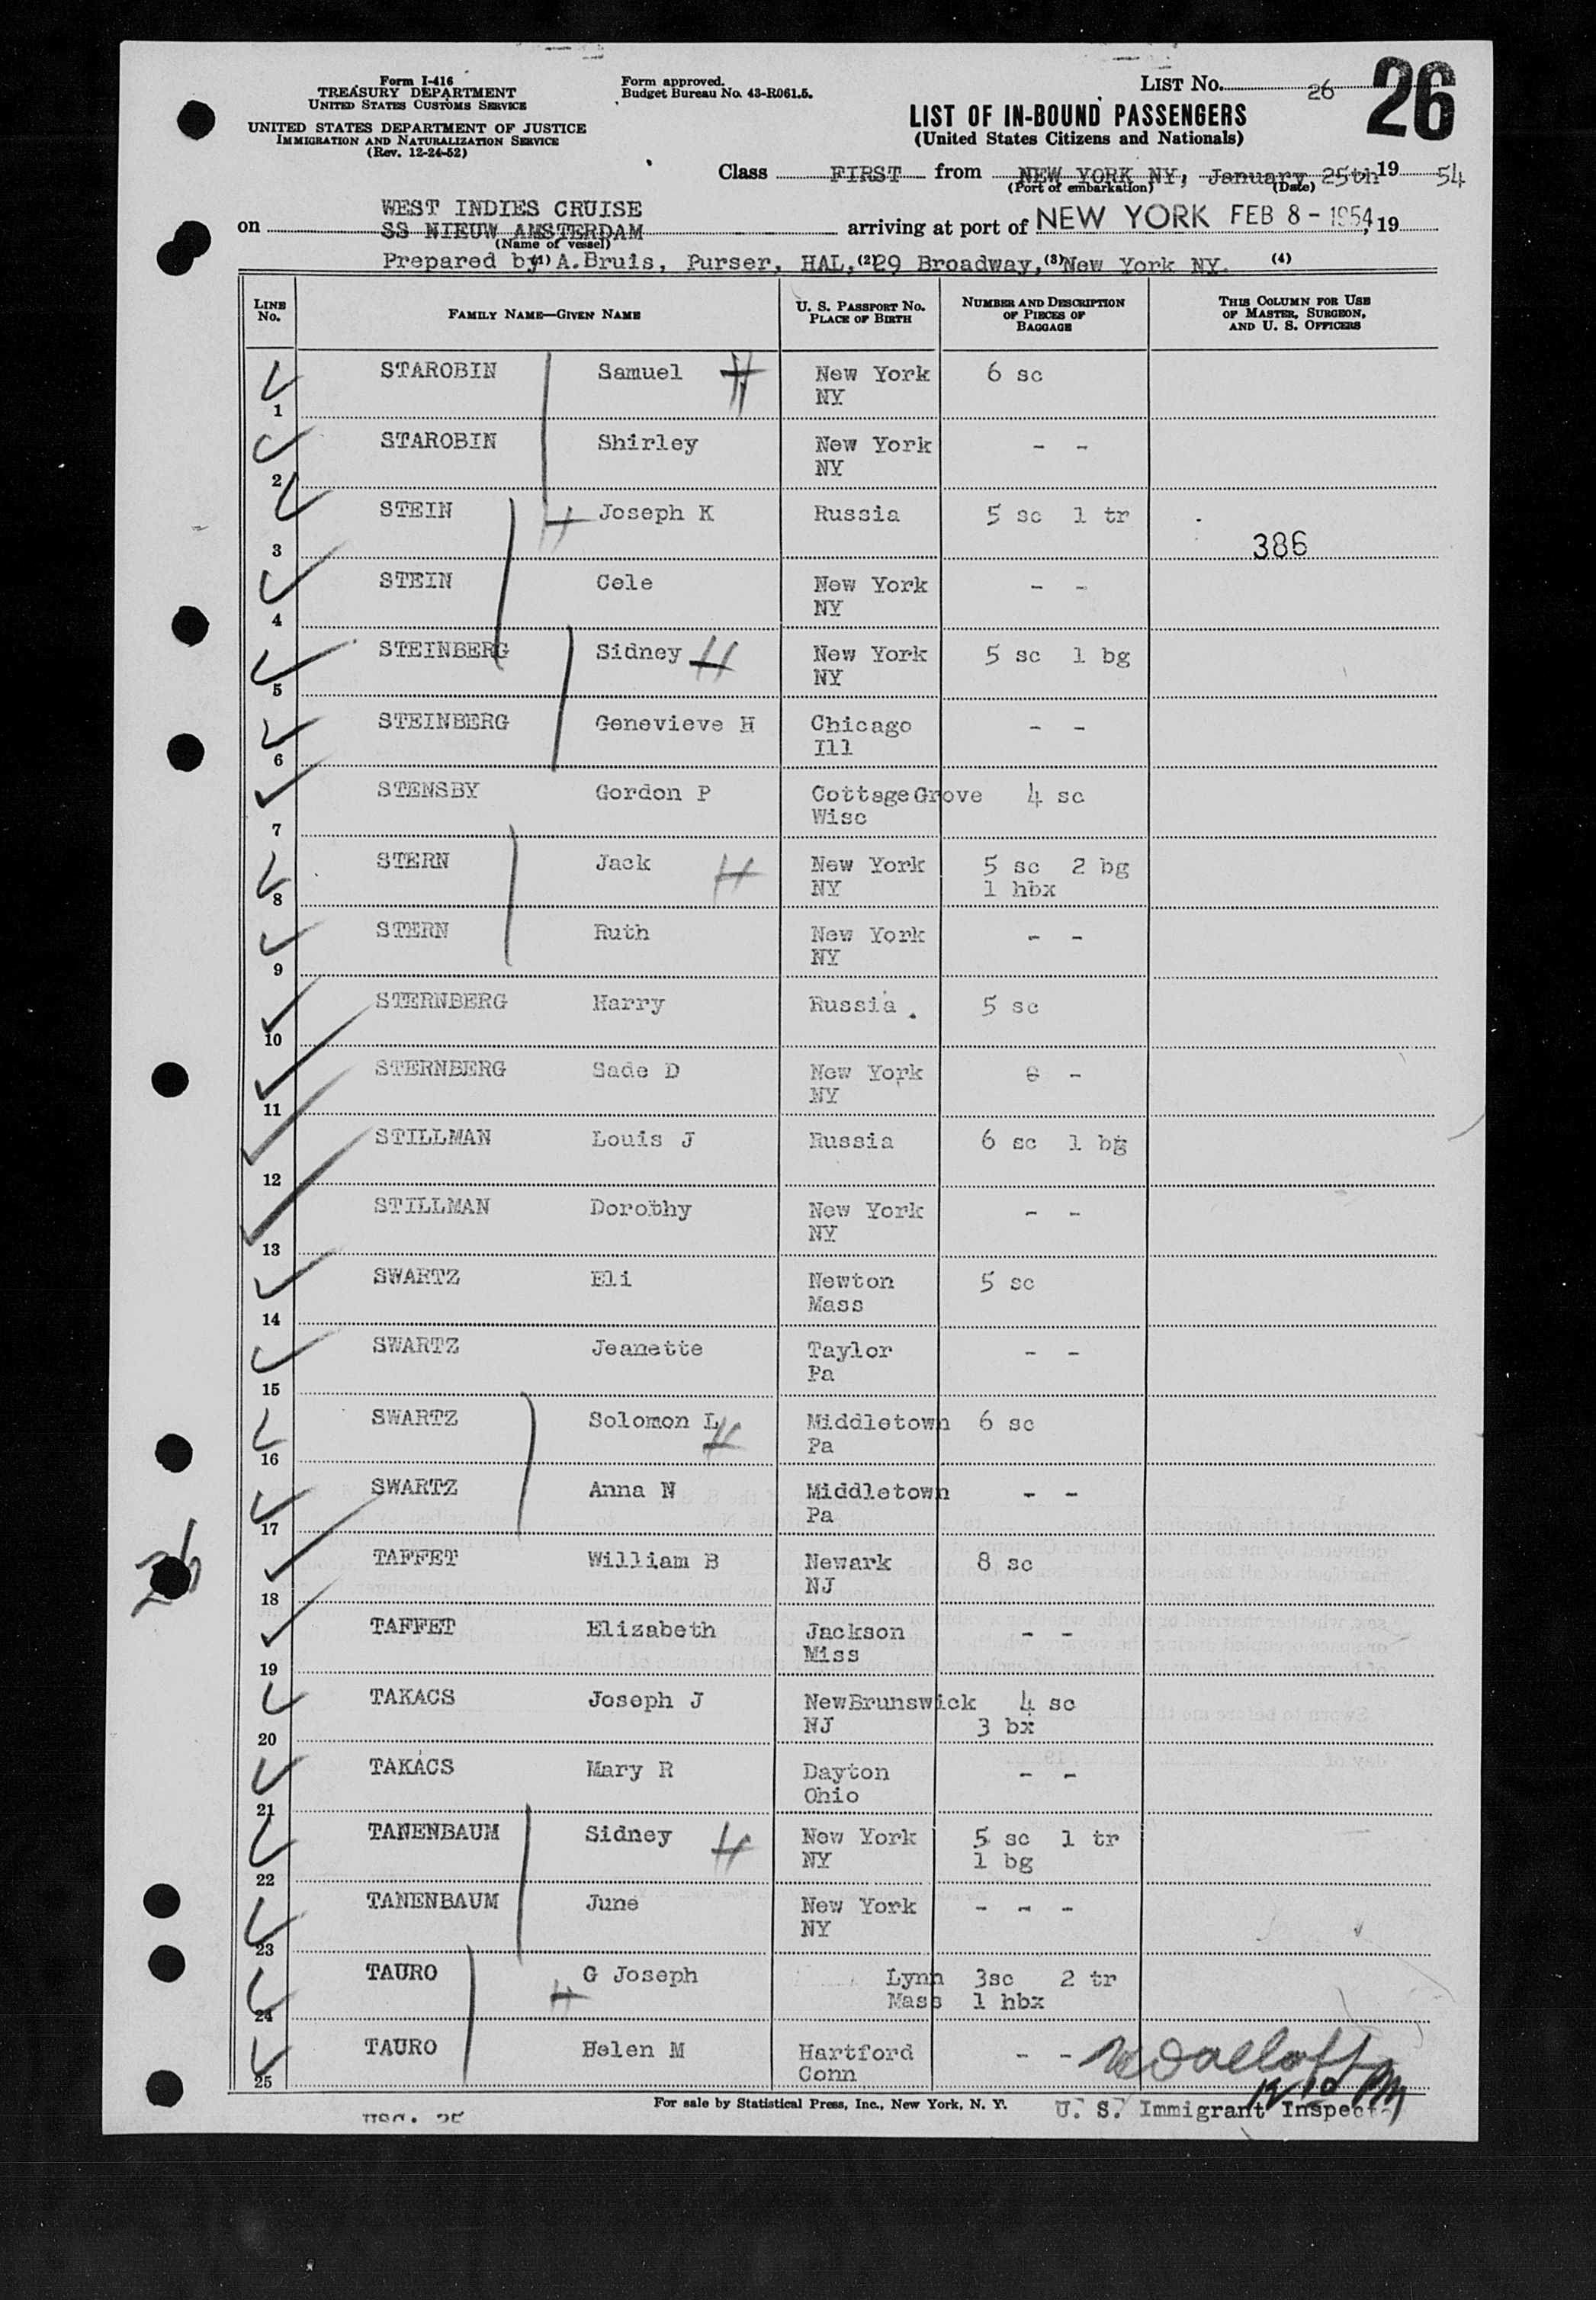 Form I-416
TREASURY DEPARTMENT
UNITED STATES CUSTOMS SERVICE
UNITED STATES DEPARTMENT OF JUSTICE
IMMIGRATION AND NATURALIZATION SERVICE
(Rev. 12-24-52)
Form approved.
Budget Bureau No. 43-R061.5.
LIST No. 26
26
LIST OF IN-BOUND PASSENGERS
(United States Citizens and Nationals)
Class FIRST from NEW YORK NY, January 25th 19 54
(Port of embarkation) (Date)
WEST INDIES CRUISE
on SS NIEUW AMSTERDAM arriving at port of NEW YORK FEB 8 - 1954, 19
(Name of vessel)
Prepared by (1) A.Bruis, Purser, HAL, (2) 29 Broadway, (3) New York NY. (4)
LINE No. FAMILY NAME—GIVEN NAME U. S. PASSPORT No. PLACE OF BIRTH NUMBER AND DESCRIPTION OF PIECES OF BAGGAGE THIS COLUMN FOR USE OF MASTER, SURGEON, AND U. S. OFFICERS
STAROBIN Samuel H New York 6 sc
1 NY
STAROBIN Shirley New York - -
2 NY
STEIN H Joseph K Russia 5 sc 1 tr
3 386
STEIN Cele New York - -
4 NY
STEINBERG Sidney H New York 5 sc 1 bg
5 NY
STEINBERG Genevieve H Chicago - -
6 Ill
STENSBY Gordon P CottageGrove 4 sc
7 Wisc
STERN Jack H New York 5 sc 2 bg
8 NY 1 hbx
STERN Ruth New York - -
9 NY
STERNBERG Harry Russia. 5 sc
10
STERNBERG Sade D New York -
11 NY
STILLMAN Louis J Russia 6 sc 1 bg
12
STILLMAN Dorothy New York - -
13 NY
SWARTZ Eli Newton 5 sc
14 Mass
SWARTZ Jeanette Taylor - -
15 Pa
SWARTZ Solomon L H Middletown 6 sc
16 Pa
SWARTZ Anna N Middletown - -
17 Pa
26
TAFFET William B Newark 8 sc
18 NJ
TAFFET Elizabeth Jackson - -
19 Miss
TAKACS Joseph J NewBrunswick 4 sc
20 NJ 3 bx
TAKACS Mary R Dayton - -
21 Ohio
TANENBAUM Sidney H New York 5 sc 1 tr
22 NY 1 bg
TANENBAUM June New York - - -
23 NY
TAURO H G Joseph Lynn 3sc 2 tr
24 Mass 1 hbx
TAURO Helen M Hartford - -
25 Conn
For sale by Statistical Press, Inc., New York, N. Y.
U. S. Immigrant Inspector